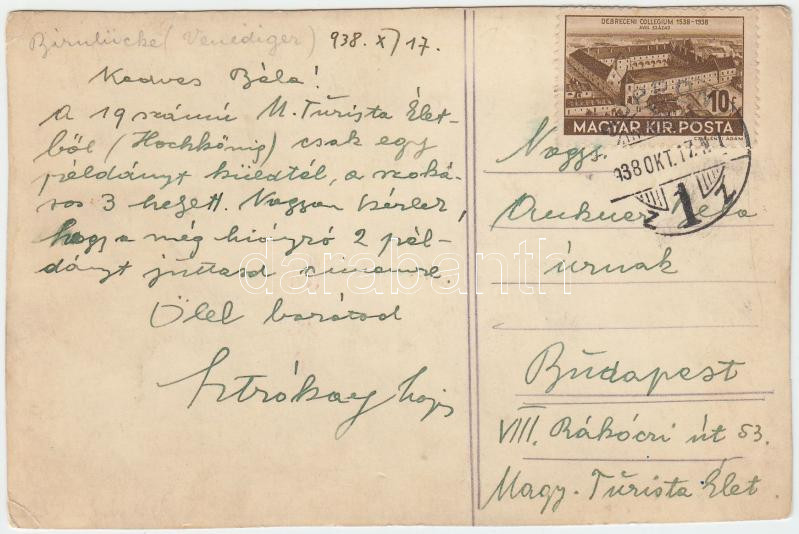 Birnlücke (Venediger) 938. X/17.
Kedves Béla!
A 19 számú M. Turista Élet-
ből (Hochkönig) csak egy
példányt küldtél, a szoká-
sos 3 helyett. Nagyon kérlek,
hogy a még hiányzó 2 pél-
dányt juttasd címemre.
Ölel barátod
Sztrókay Lajos
DEBRECENI COLLEGIUM 1538-1938
XVIII. SZÁZAD
10f
MAGYAR KIR. POSTA
938 OKT. 17.
1
Nags.
Béla
úrnak
Budapest
VIII. Rákóczi út 53.
Magy. Turista Élet
darabanth